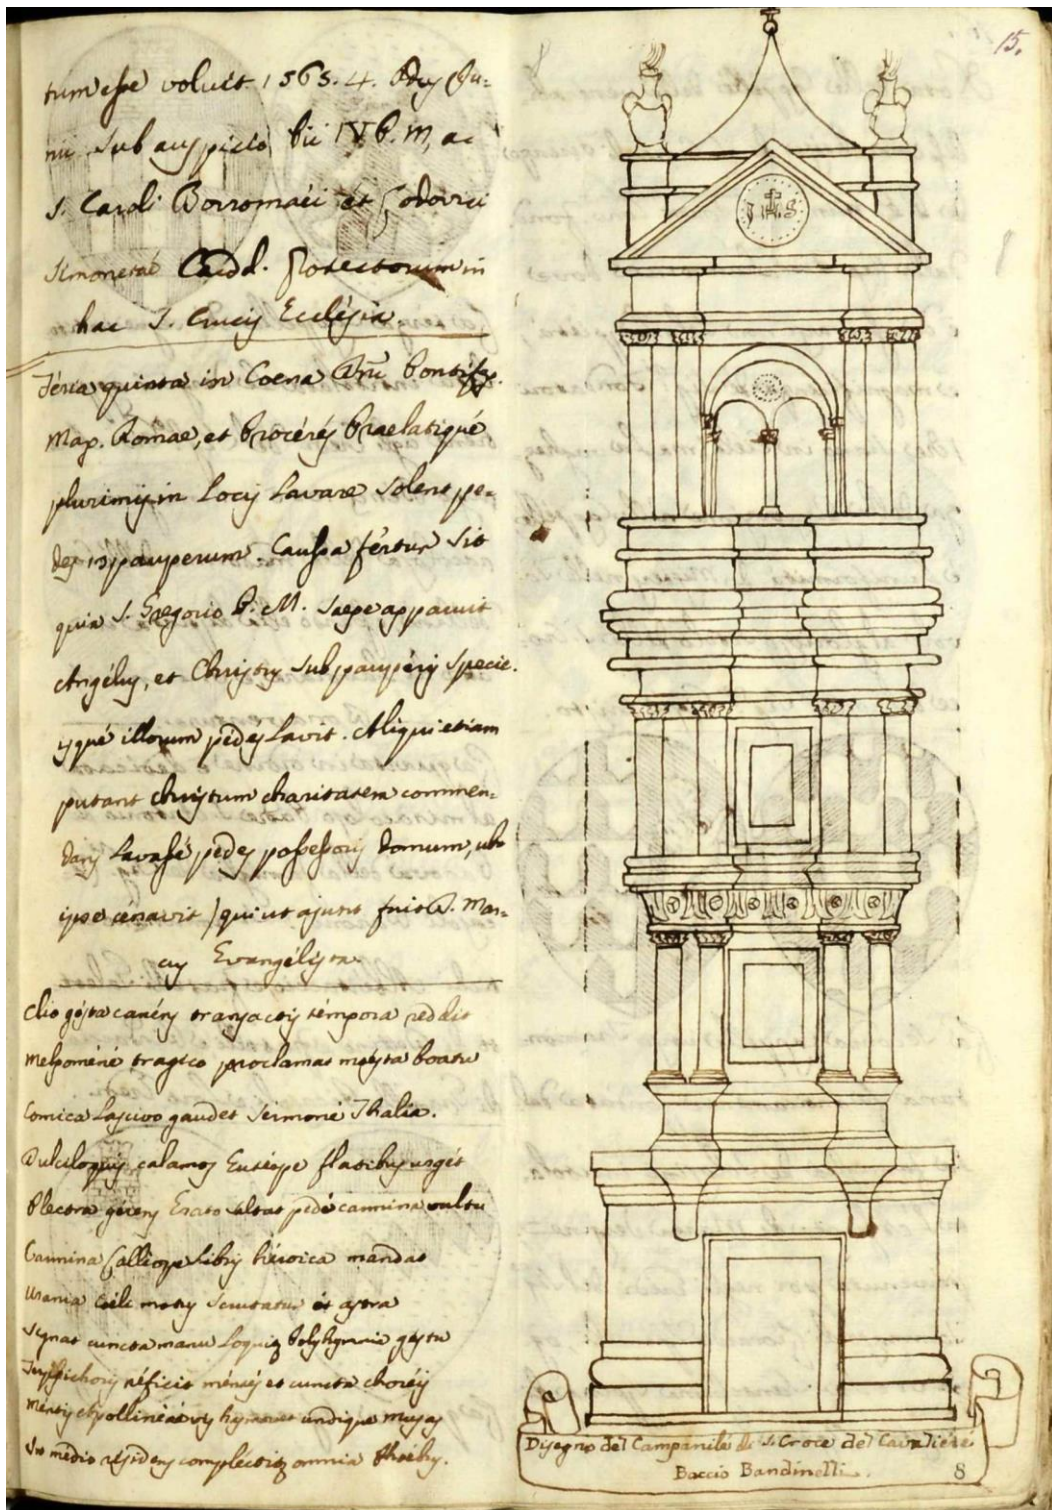 tum esse voluit. 1565. 4. Idus Ju-
nii sub auspiciis Pii IV P. M, ac
S. Caroli Borromaei et Lodovici
Simonetae Cardd. Protectorum in
hac S. Crucis Ecclesia
Feria quinta in Coena Dni Pontifex
Max. Romae, et Proceres Praelatique
plurimis in Locis Lavare solent pe-
des 13 pauperum. Caussa fertur sit
quia S. Gregorio P. M. saepe apparuit
Angelus, et Christus sub pauperis specie.
isque illorum pedes Lavit. Aliqui etiam
putant christum charitatem commen-
dans Lavasse pedes possessoris domum, ubi
ipse cenavit / qui ut ajunt fuit D. Mar-
cus Evangelista
Clio gesta canens transactis tempora reddit
Melpomene tragico proclamat maesta boatu
Comica Lascivo gaudet sermone Thalia.
Dulciloquis calamos Euterpe flatibus urget
Plectra gerens Erato saltat pede carmine vultu
Carmina Calliope Libris heroica mandat
Urania Coeli motus scrutatur et astra
Signat cuncta manu Loquitq Polyhymnia gestu
Terpsichoris reficit menses et cuncta choreis
Mentis Apollineae vis hymenaet undique musas
In medio residens complectitq omnia Phoebus.
15.
IHS
Disegno del Campanile di S. Croce del Cavaliere
Baccio Bandinelli.
8